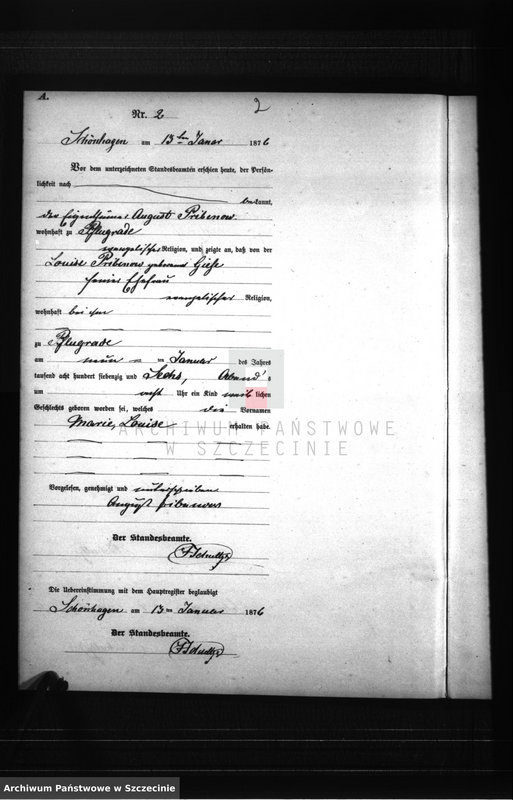 A.
Nr. 2
2
Schönhagen am 13ten Januar 1876
Vor dem unterzeichneten Standesbeamten erschien heute, der Persön-
lichkeit nach
bekannt,
der Eigenthümer August Pribenow
wohnhaft zu Pflugrade
evangelischer Religion, und zeigte an, daß von der
Louise Pribenow geborene Giese
seiner Ehefrau
evangelischer Religion,
wohnhaft bei ihm
zu Pflugrade
am neun ten Januar des Jahres
tausend acht hundert siebenzig und Sechs, Abends
um acht Uhr ein Kind weiblichen
Geschlechts geboren worden sei, welches die Vornamen
Marie, Louise
erhalten habe.
Vorgelesen, genehmigt und unterschrieben
August Pribenow
Der Standesbeamte.
Die Uebereinstimmung mit dem Hauptregister beglaubigt
Schönhagen am 13ten Januar 1876
Der Standesbeamte.
ARCHIWUM PAŃSTWOWE
W SZCZECINIE
Archiwum Państwowe w Szczecinie